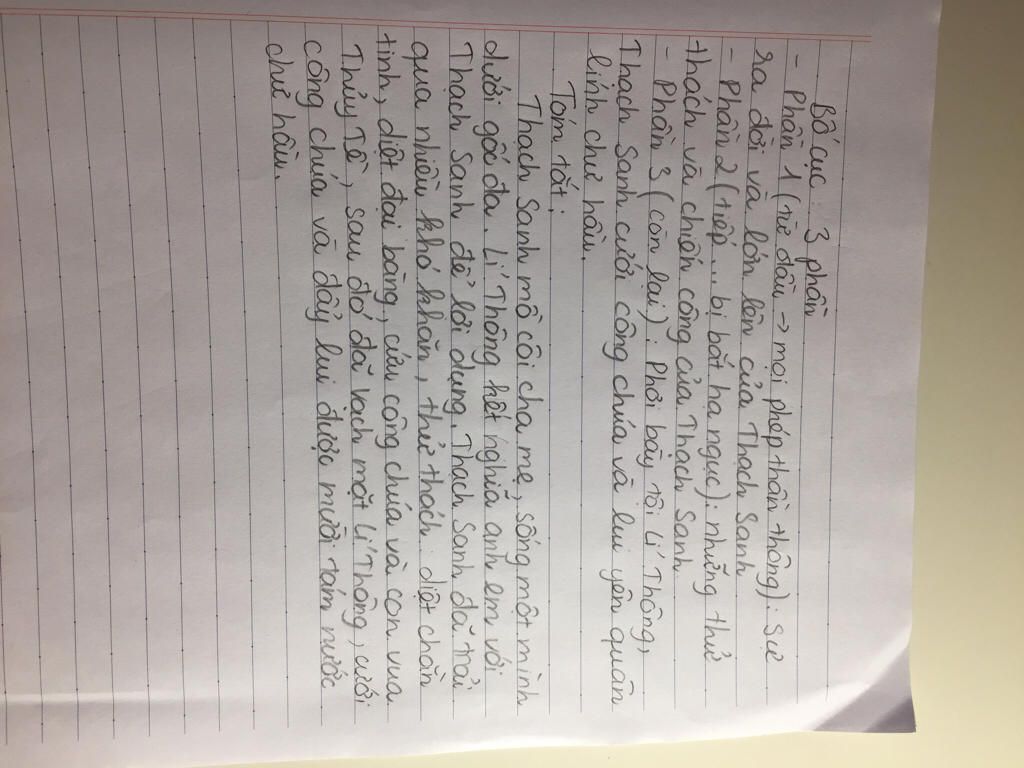 Bố cục: 3 phần
- Phần 1 (từ đầu → mọi phép thần thông): Sự
ra đời và lớn lên của Thạch Sanh
- Phần 2 (tiếp... bị bắt hạ ngục): những thử
thách và chiến công của Thạch Sanh
- Phần 3 (còn lại): Phơi bày tội Lí Thông,
Thạch Sanh cưới công chúa và lui yên quân
lính chư hầu.
Tóm tắt:
Thạch Sanh mồ côi cha mẹ, sống một mình
dưới gốc đa. Lí Thông kết nghĩa anh em với
Thạch Sanh để lợi dụng. Thạch Sanh đã trải
qua nhiều khó khăn, thử thách: diệt chằn
tinh, diệt đại bàng, cứu công chúa và con vua
Thủy Tề, sau đó đã vạch mặt Lí Thông, cưới
công chúa và đẩy lui được mười tám nước
chư hầu.